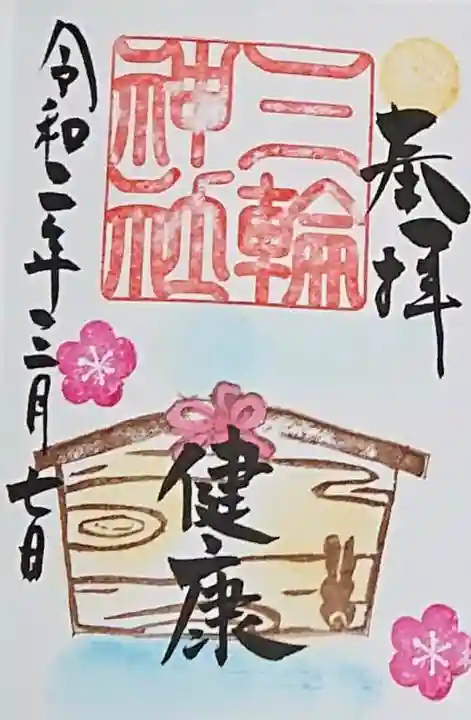 奉拝
三輪
神社
健康
令和二年三月七日